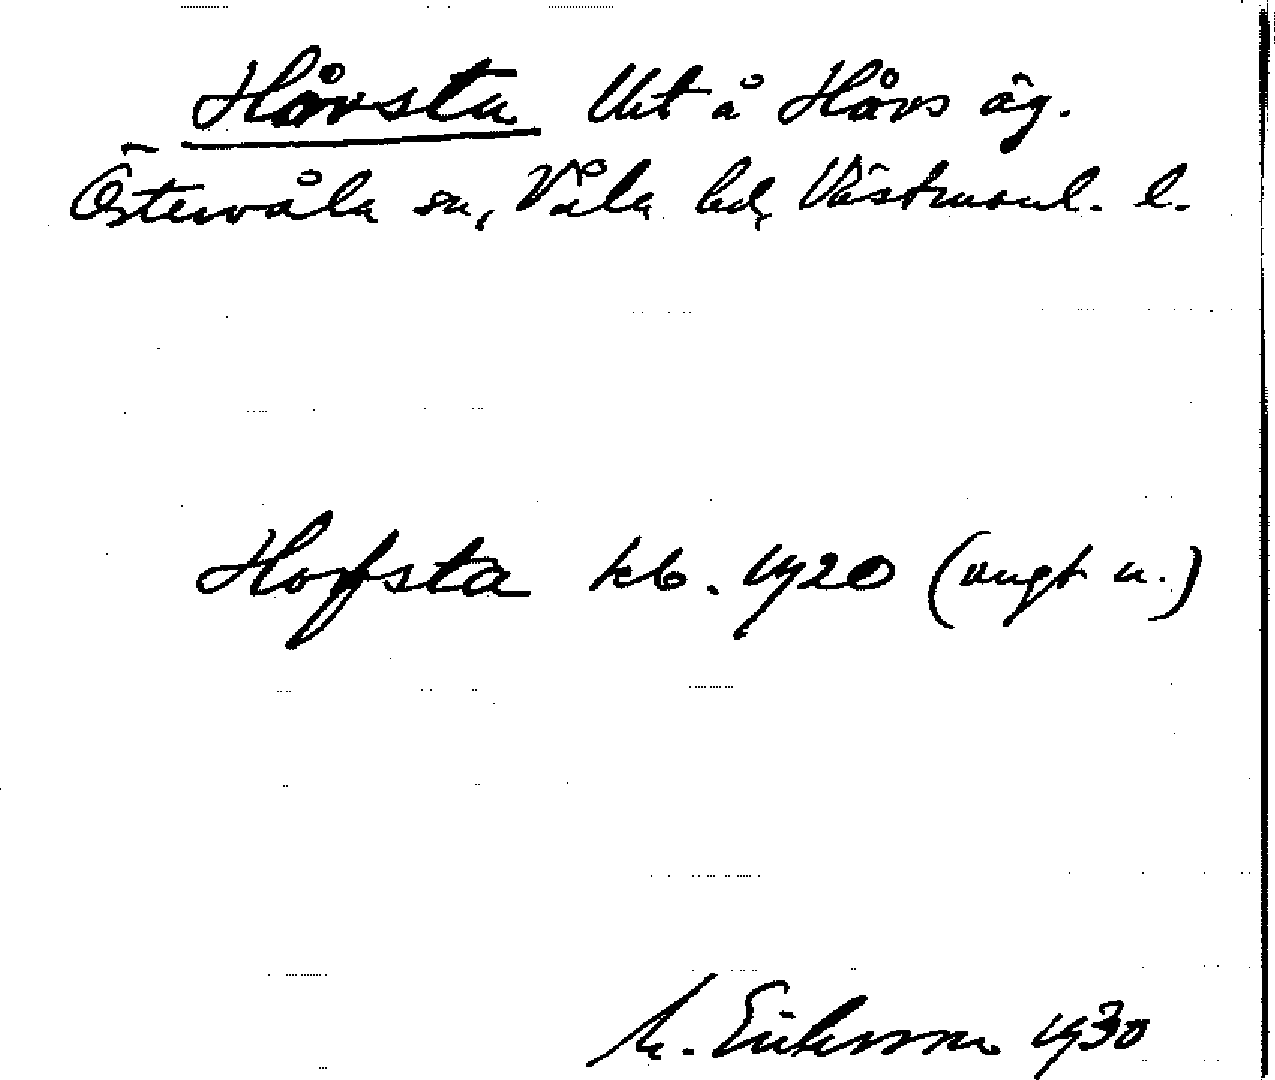 Håvsta Utt å Håvs äg.
Östervåla sn, Våla hd, Västmanl. l.
Hofsta kb. 1920 (ungt n.)
M. Eriksson 1930